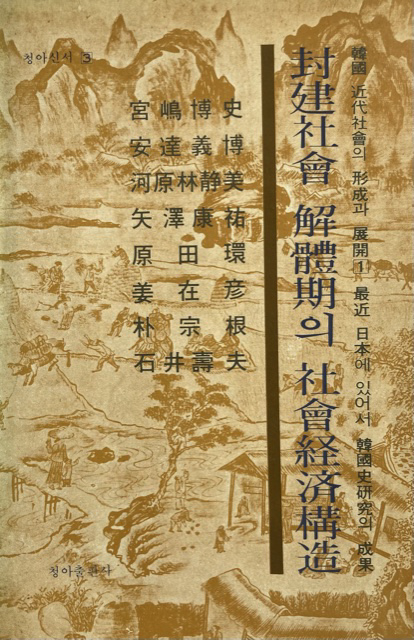 韓國 近代社會의 形成과 展開 1 最近 日本에 있어서 韓國史硏究의 成果
封建社會 解體期의 社會経済構造
청아신서 3
宮嶋博史
安達義博
河原林静美
矢澤康祐
原田環
姜在彦
朴宗根
石井壽夫
청아출판사